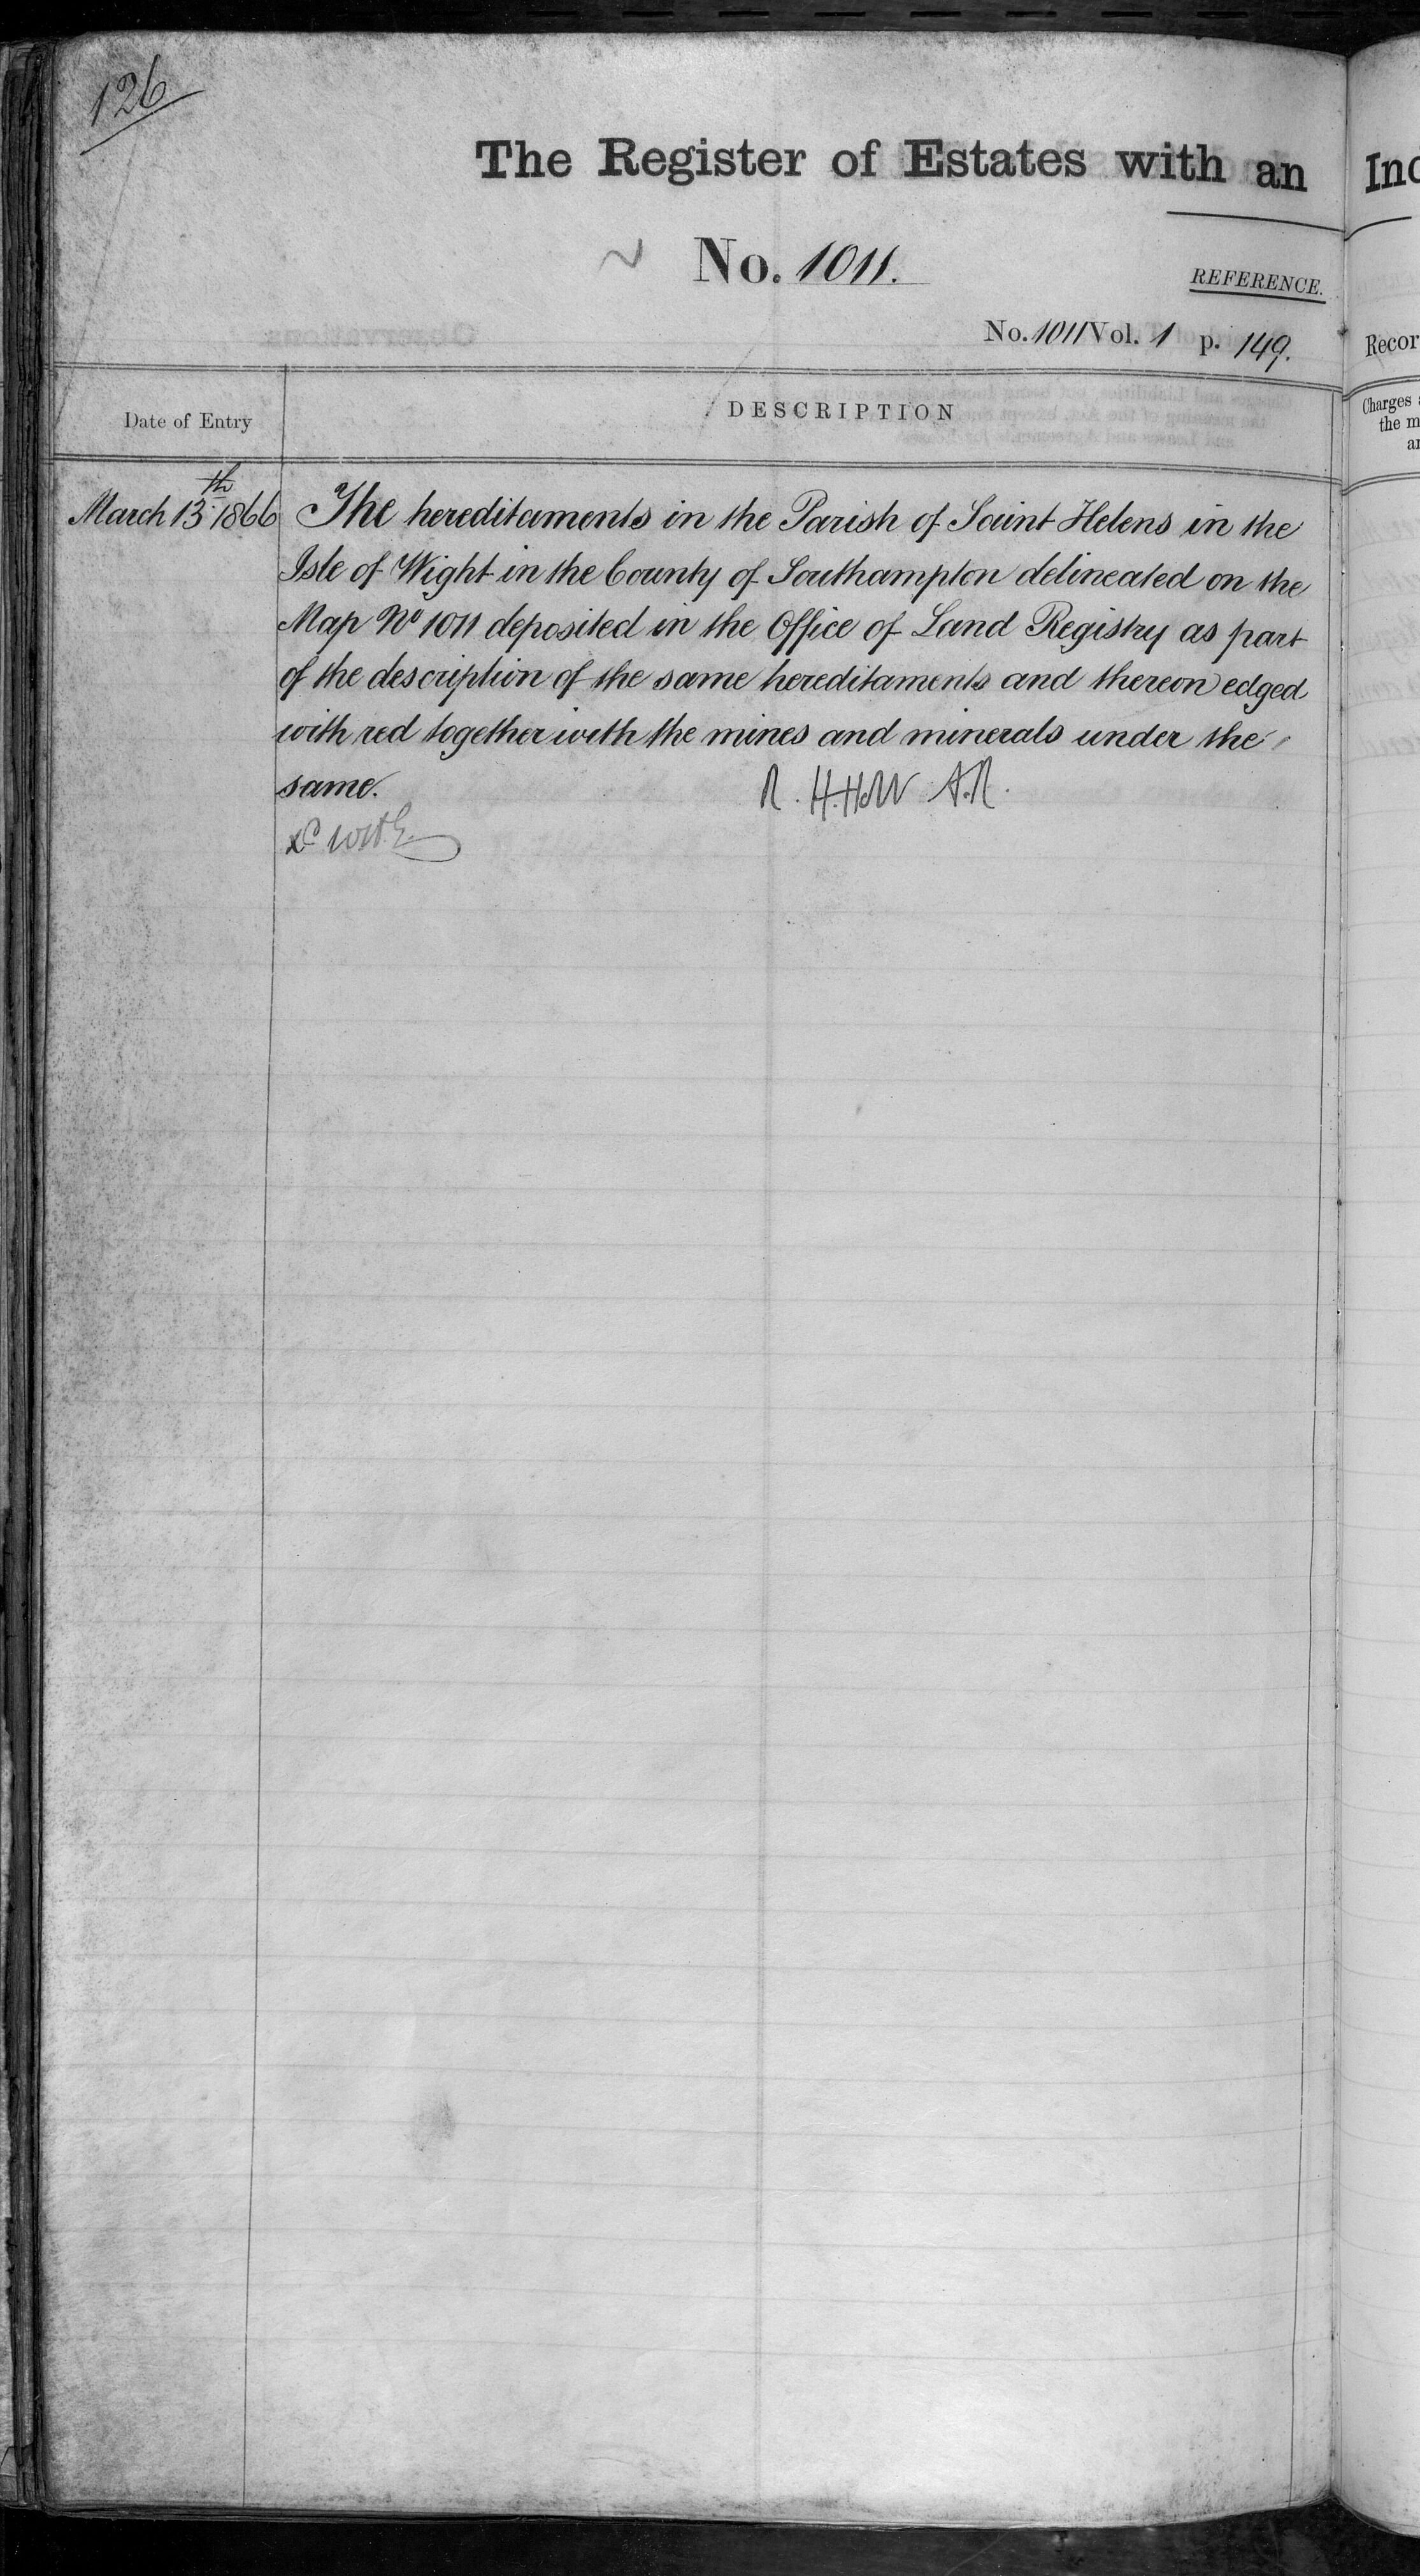 126
The Register of Estates with an
No. 1011.
REFERENCE.
No. 1011 Vol. 1 p. 149.
Date of Entry
DESCRIPTION
March 13th 1866
The hereditaments in the Parish of Saint Helens in the
Isle of Wight in the County of Southampton delineated on the
Map No 1011 deposited in the Office of Land Registry as part
of the description of the same hereditaments and thereon edged
with red together with the mines and minerals under the
same.
Recor
Charges
the m